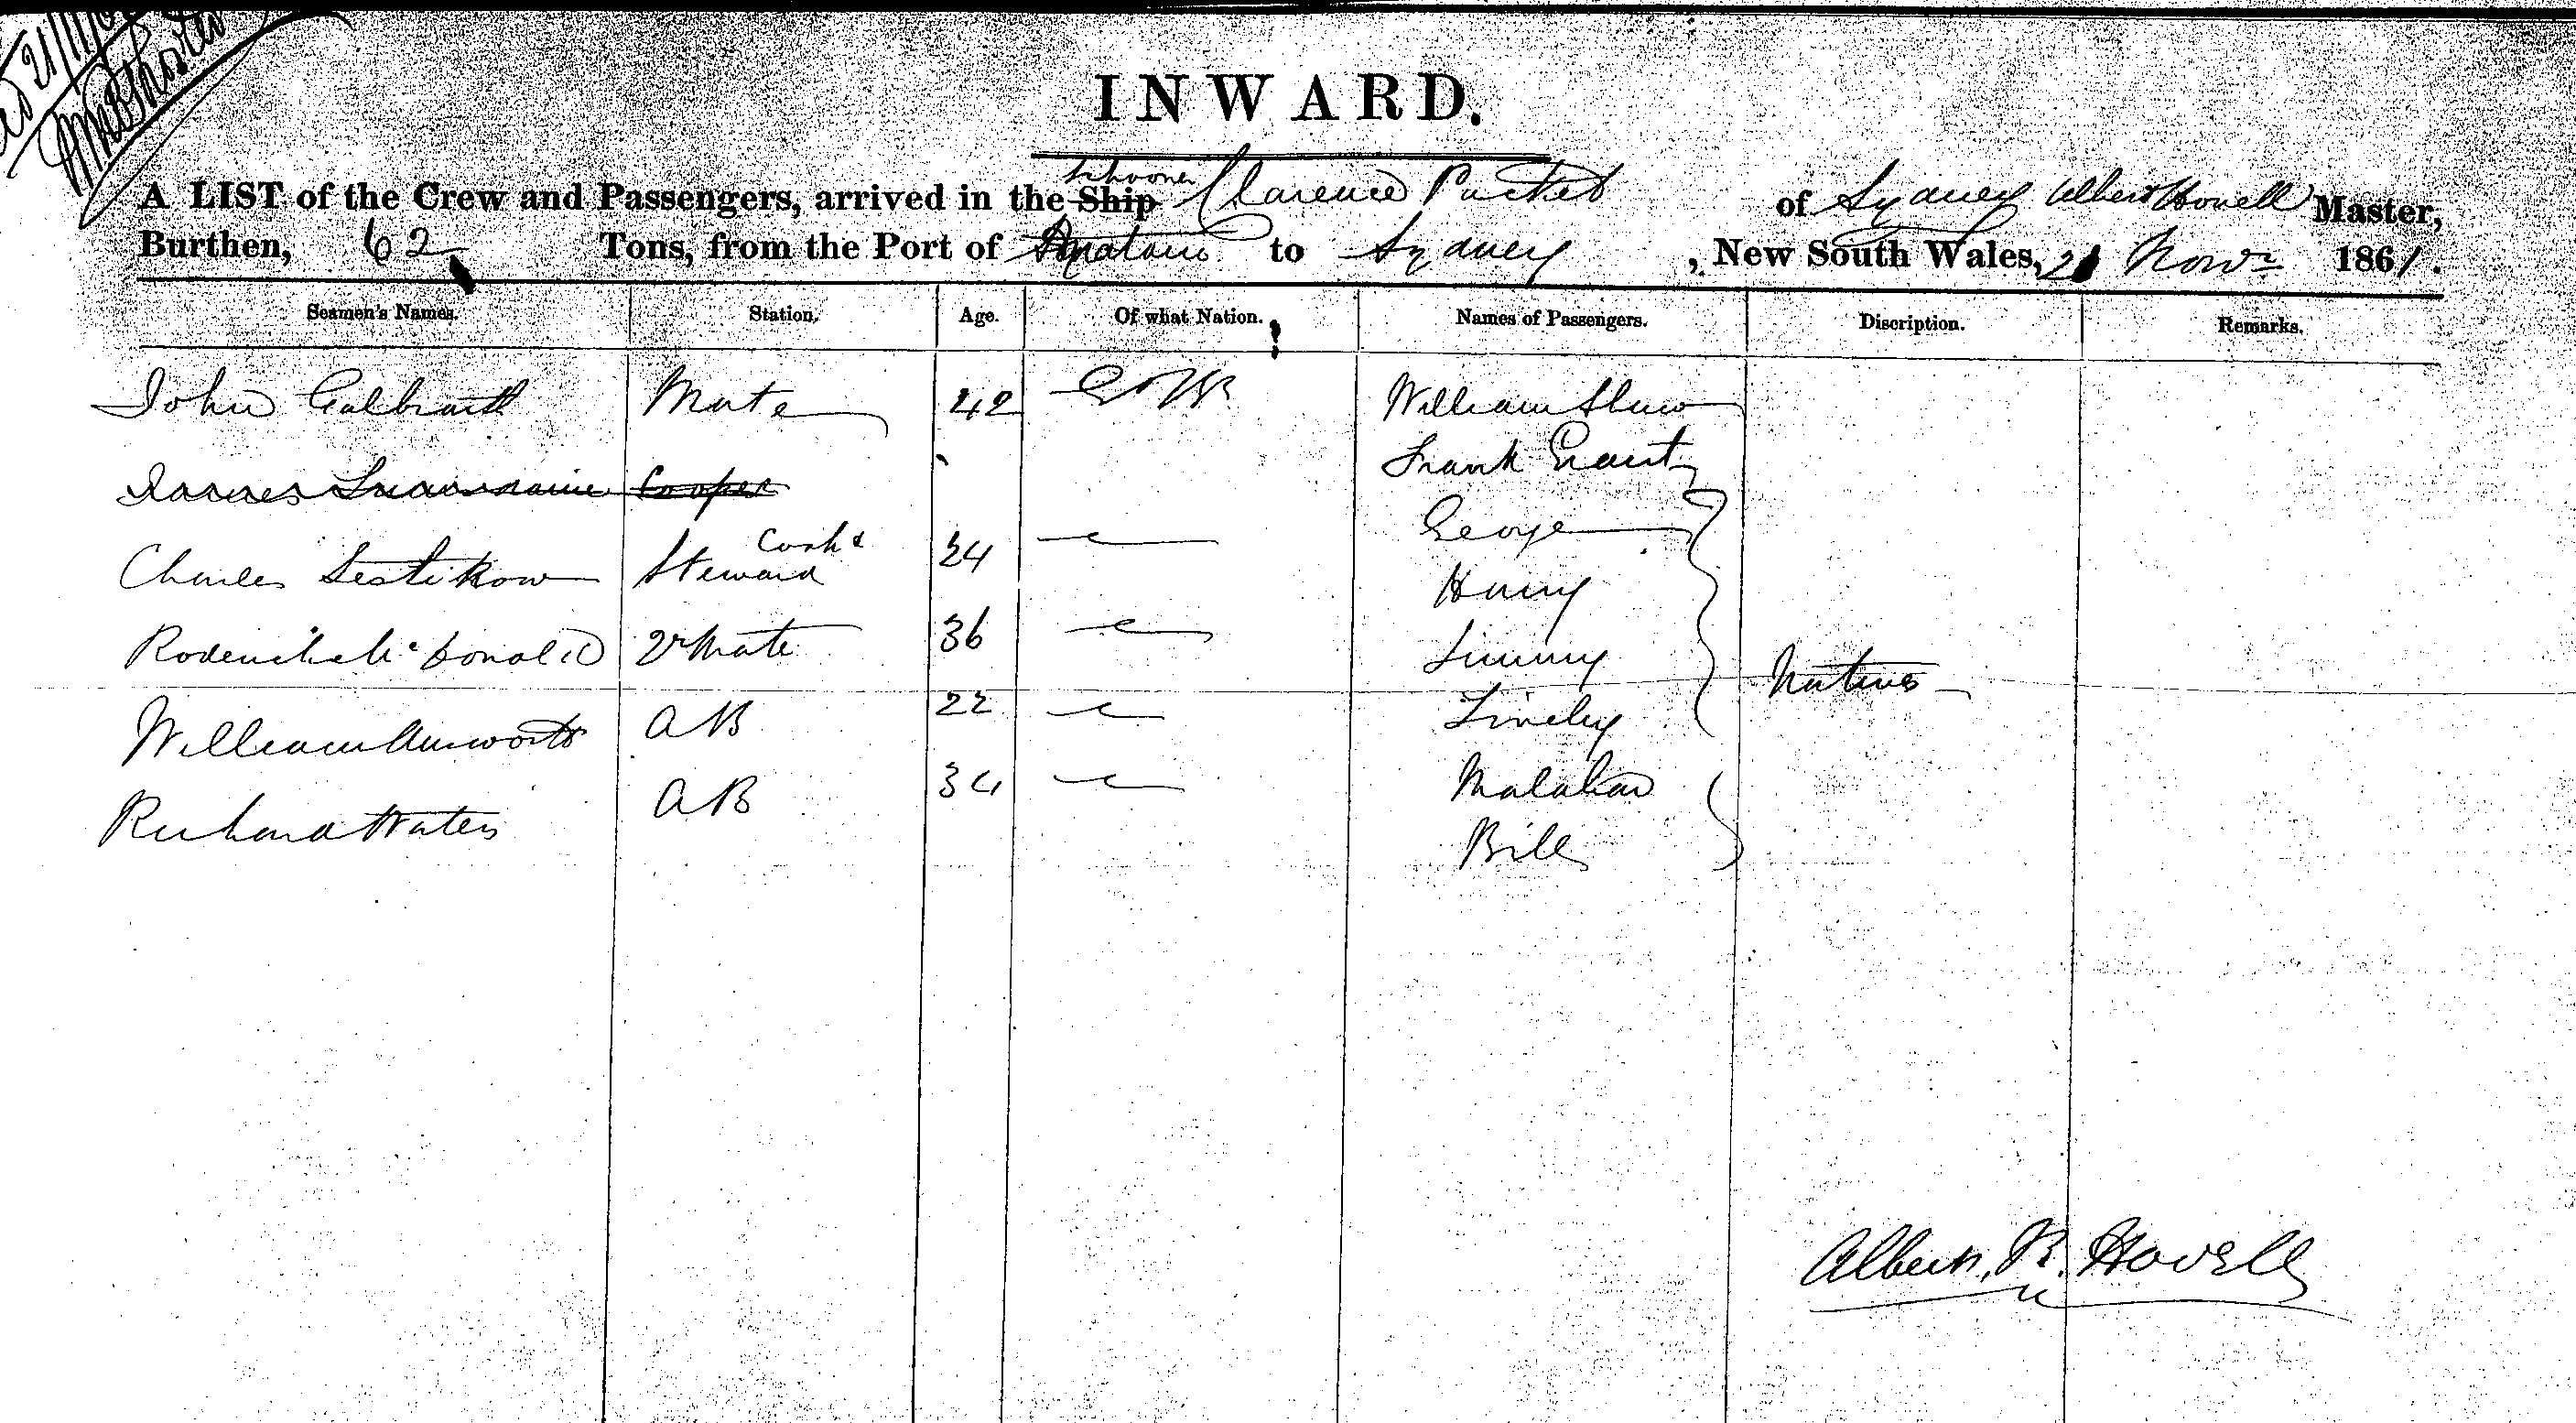 INWARD.
A LIST of the Crew and Passengers, arrived in the Ship Schooner Clarence Packet of Sydney Albert Hovell Master,
Burthen, 62 Tons, from the Port of to Sydney, New South Wales, 21 Novr 1861.
Seamen's Names. Station. Age. Of what Nation. Names of Passengers. Discription. Remarks.
John Galbraith Mate 42 William Shaw
Frank Grant
James Cooper
George
Charles Cook & Steward 24
Harry
Roderick Mc Donald 2d Mate 36 Jimmy
Natives
William Answorth AB 22
Richard Waters AB 34
Bill
Albert. R. Hovell